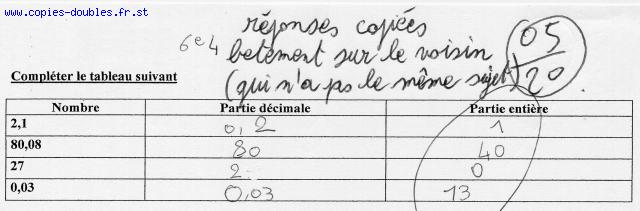 www.copies-doubles.fr.st
6e4
réponses copiées
betement sur le voisin
(qui n'a pas le même sujet)
05
20
Compléter le tableau suivant
Nombre Partie décimale Partie entière
2,1 0,2 1
80,08 80 40
27 2 0
0,03 0,03 13